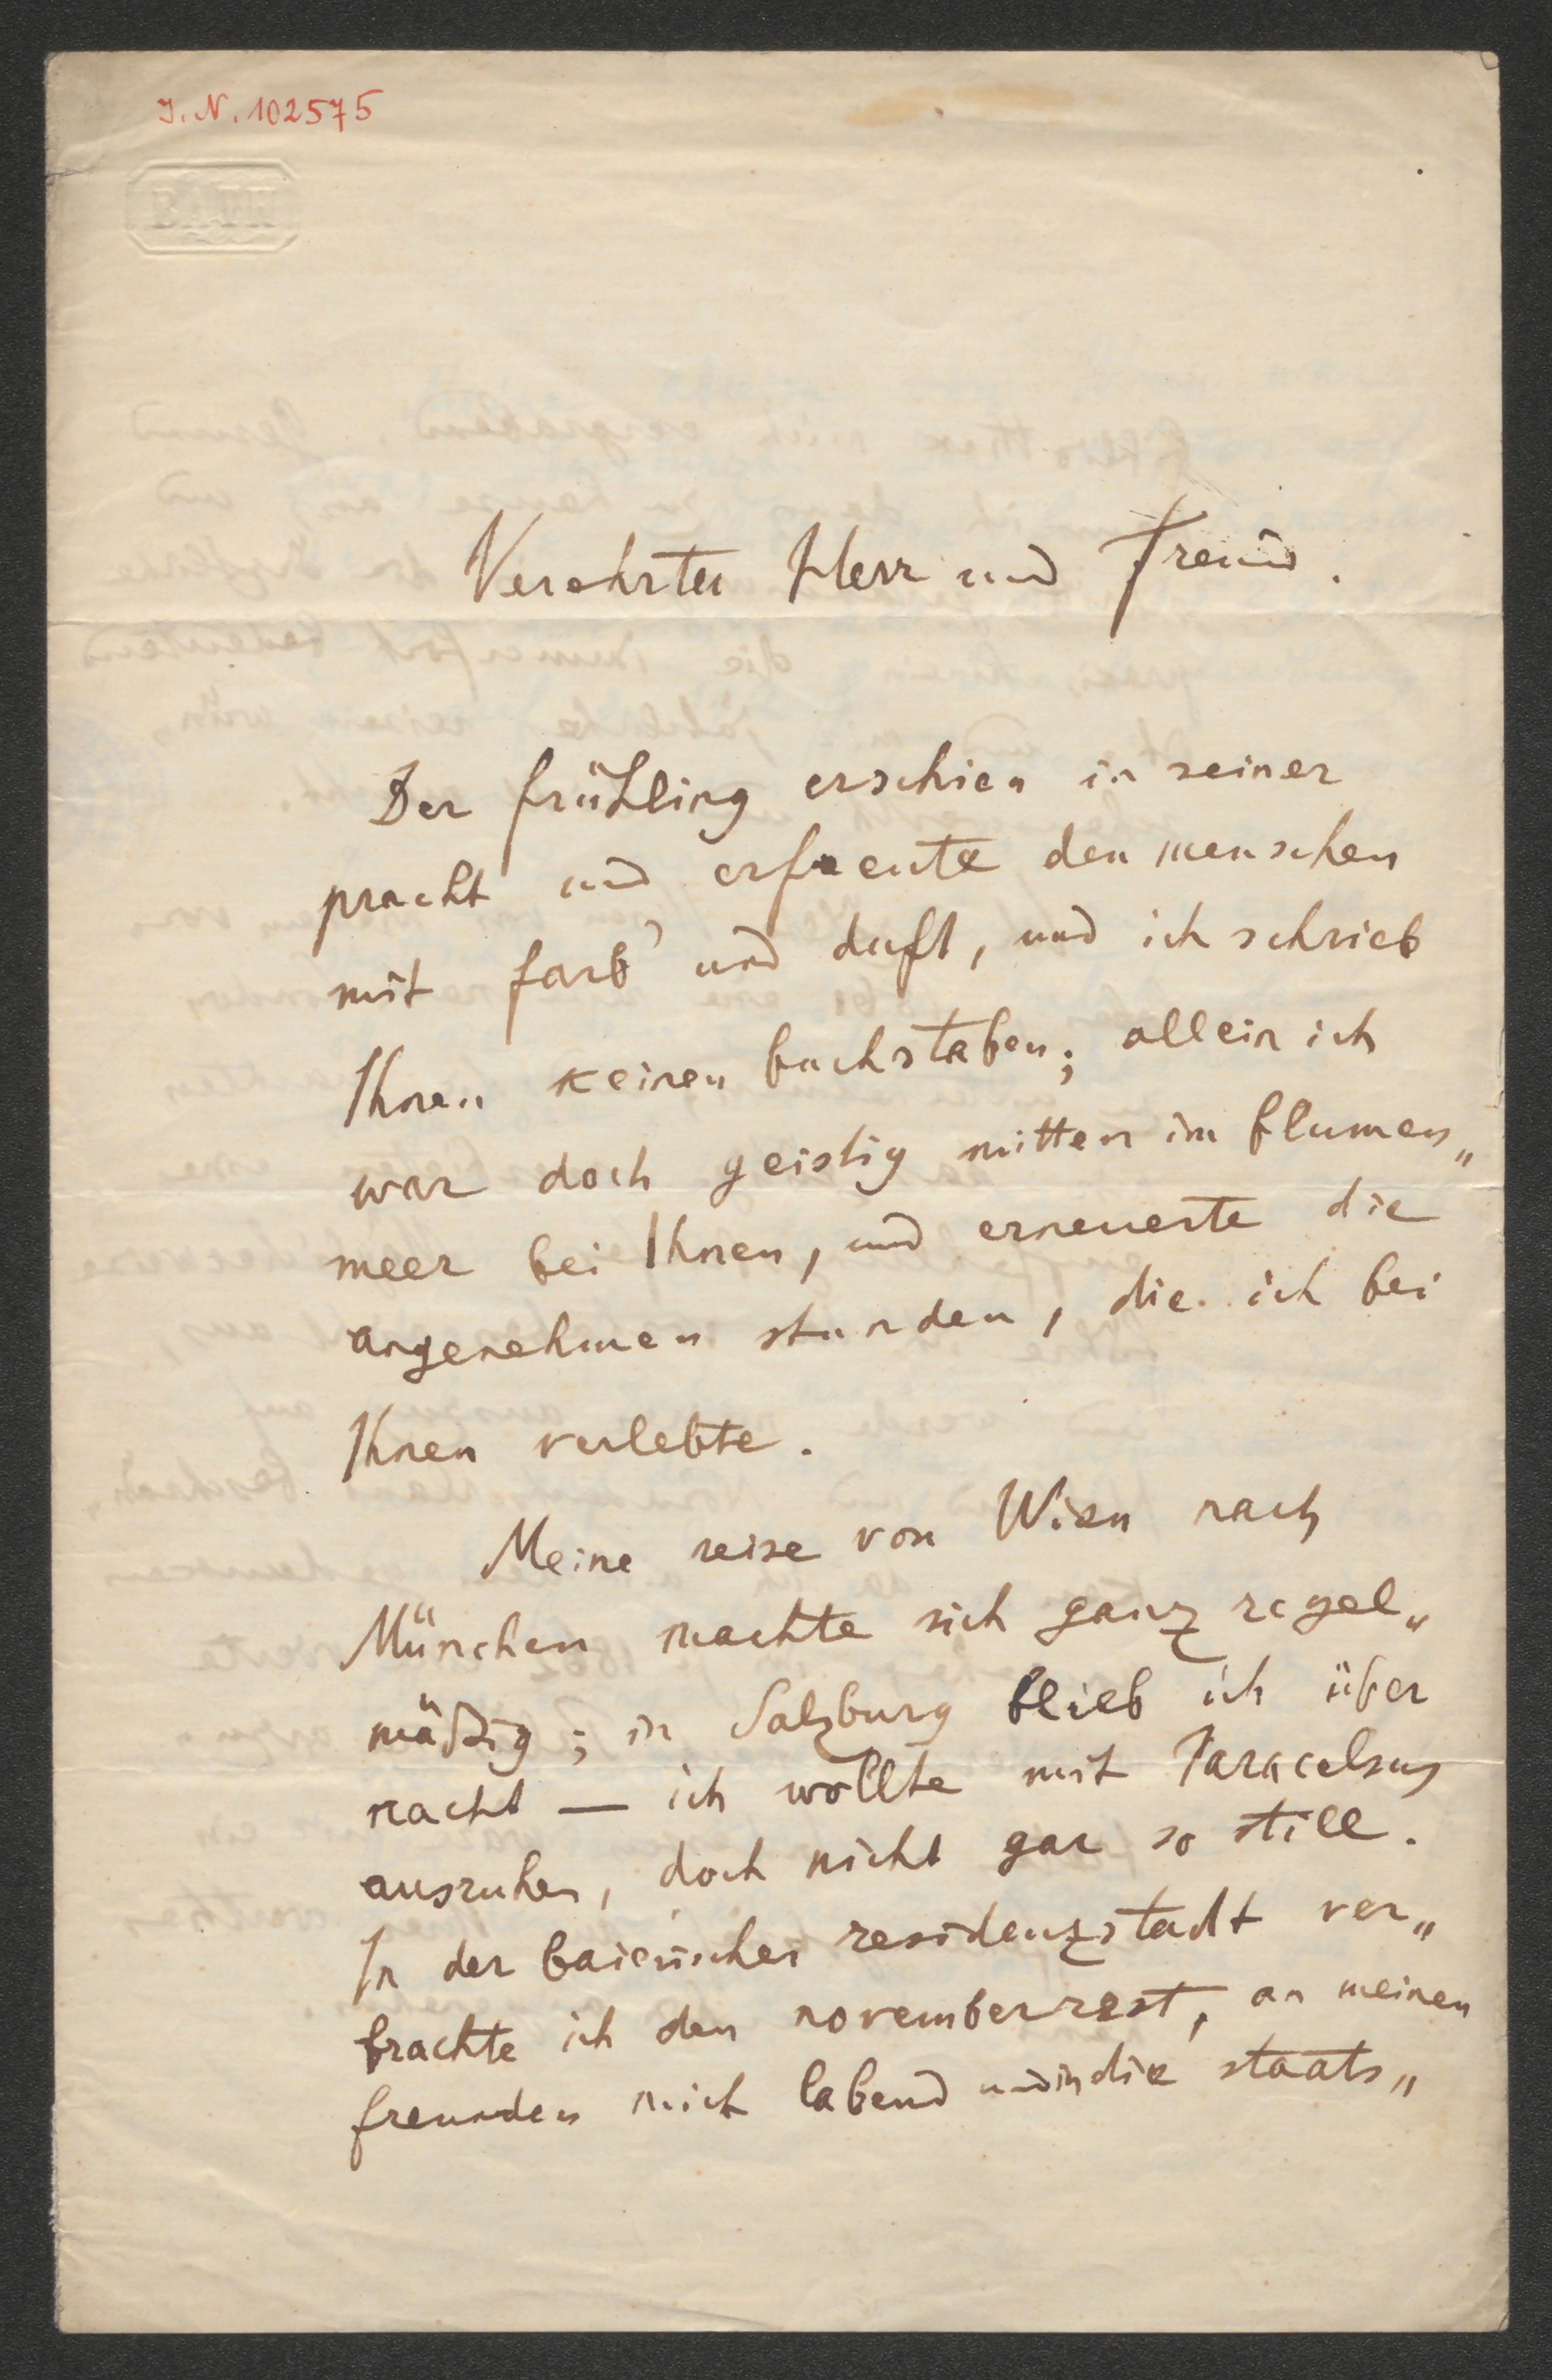 J. N. 102575
BATH
Verehrter Herr und Freund.
Der frühling erschien in seiner
pracht und erfreute den menschen
mit farb' und duft, und ich schrieb
Ihnen keinen buchstaben; allein ich
war doch geistig mitten im blumen„
meer bei Ihnen, und erneuerte die
angenehmen stunden, die ich bei
Ihnen verlebte.
Meine reise von Wien nach
München machte sich ganz regel„
mäßig; in Salzburg blieb ich über
nacht — ich wollte mit Paracelsus
ausruhen, doch nicht gar so still.
In der baierischen residenzstadt ver„
brachte ich den novemberrest, an meinen
freunden mich labend und in die staats„